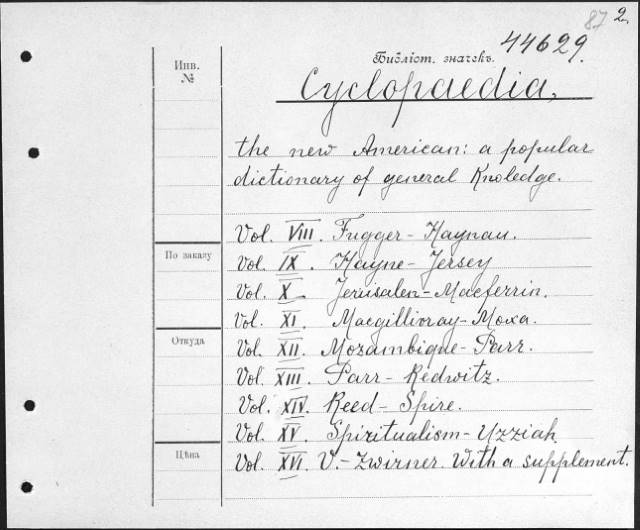 87 2.
44629.
Инв.
№
Библіот. значекъ.
Cyclopaedia,
the new American: a popular
dictionary of general Knoledge.
Vol. VIII. Fugger - Haynau.
По заказу
Vol. IX. Hayne - Jersey
Vol. X Jerusalen - Macferrin.
Vol. XI. Macgillivray - Moxa.
Откуда
Vol. XII. Mozambique - Parr.
Vol. XIII. Parr - Redwitz.
Vol. XIV. Reed - Spire.
Vol. XV. Spiritualism - Uzziah
Цѣна
Vol. XVI. V. - Zwirner. With a supplement.